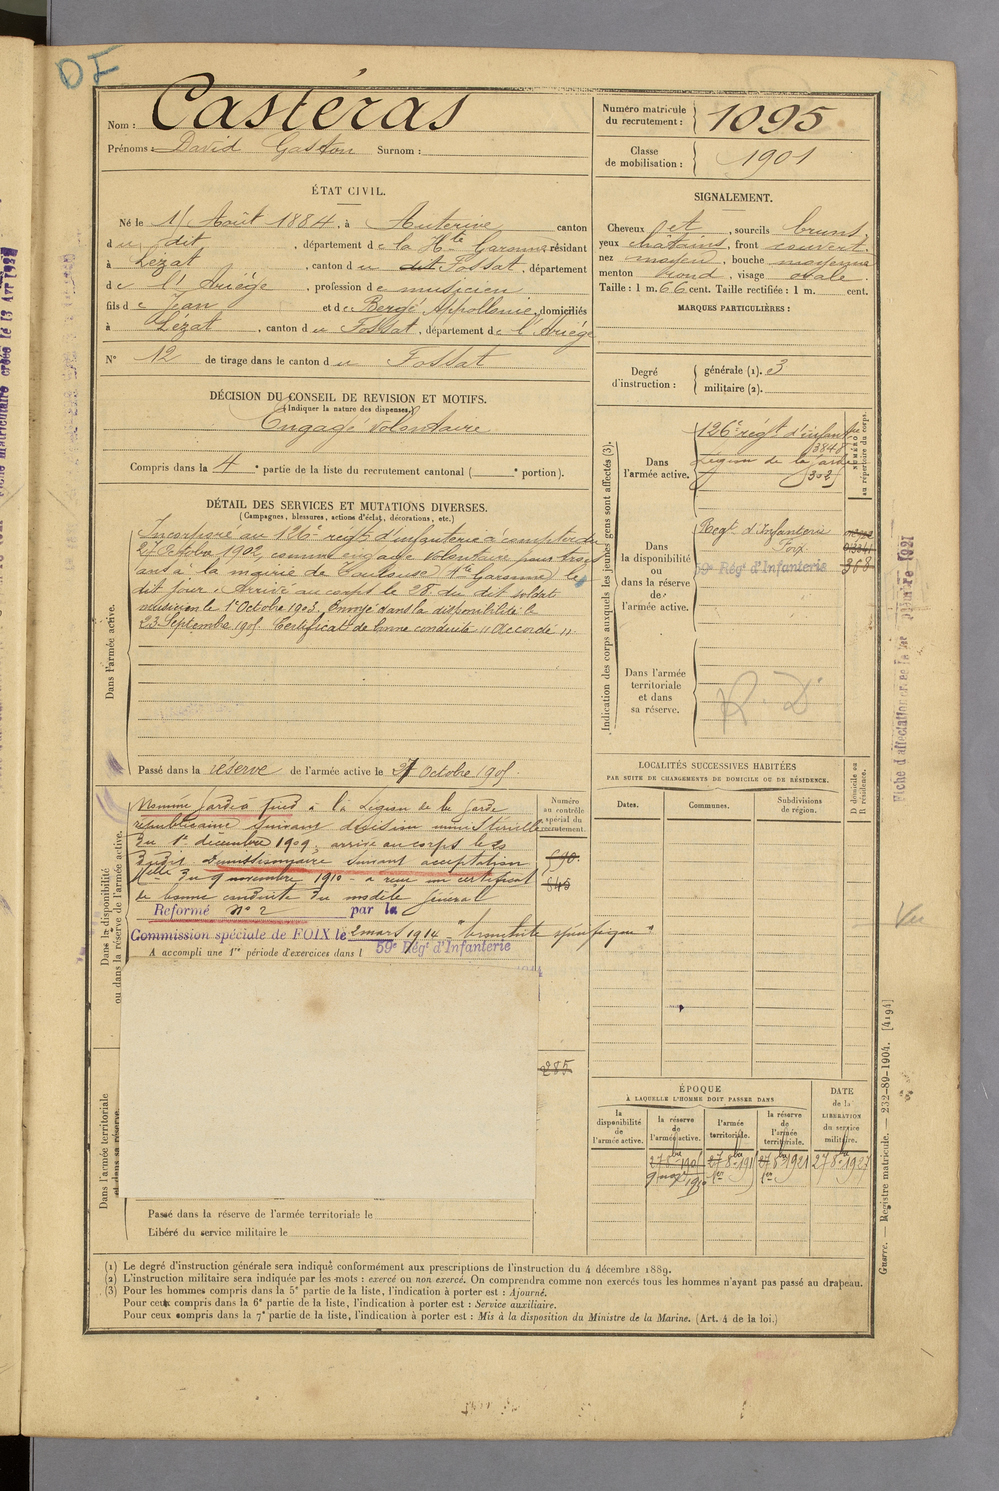 OF
Nom : Castéras
Prénoms : David Gaston Surnom :
Numéro matricule du recrutement : 1095
Classe de mobilisation : 1901
ÉTAT CIVIL.
Né le 1 Août 1884, à Auterive canton
du dit, département de la Hte Garonne, résidant
à Lézat, canton du dit Fossat, département
de l'Ariége, profession de musicien
fils de Jean et de Bergé Appollonie, domiciliés
à Lézat, canton du Fossat, département de l'Ariége
N° 12 de tirage dans le canton du Fossat
SIGNALEMENT.
Cheveux et, sourcils bruns,
yeux châtains, front couvert
nez moyen, bouche moyenne
menton rond, visage ovale
Taille : 1 m. 66 cent. Taille rectifiée : 1 m. cent.
MARQUES PARTICULIÈRES :
Degré d'instruction : générale (1). 3
militaire (2).
DÉCISION DU CONSEIL DE REVISION ET MOTIFS.
(Indiquer la nature des dispenses.)
Engagé volontaire
Compris dans la 4e partie de la liste du recrutement cantonal ( e portion).
DÉTAIL DES SERVICES ET MUTATIONS DIVERSES.
(Campagnes, blessures, actions d'éclat, décorations, etc.)
Dans l'armée active.
Incorporé au 126e régt d'infanterie à compter du
27 Octobre 1902, comme engagé volontaire pour trois
ans à la mairie de Toulouse (Hte Garonne) le
dit jour. Arrivé au corps le 28 du dit soldat
musicien le 1er Octobre 1903. Envoyé dans la disponibilité le
23 Septembre 1905. Certificat de bonne conduite "Accordé".
Passé dans la réserve de l'armée active le 27 Octobre 1905.
Dans la disponibilité
ou dans la réserve de l'armée active.
Nommé garde à pied à la Légion de la Garde
républicaine suivant décision ministérielle
du 1er décembre 1909. arrivé au corps le 20
dudit. Démissionnaire suivant acceptation
Melle du 9 novembre 1910 - a reçu un certificat
de bonne conduite du modèle général
Réformé N° 2 par la
Commission spéciale de FOIX le 2 mars 1914 "bronchite spécifique"
A accompli une 1re période d'exercices dans l 59e Régt d'Infanterie
Numéro au contrôle spécial du recrutement.
590
845
285
Dans l'armée territoriale
et dans sa réserve.
Passé dans la réserve de l'armée territoriale le
Libéré du service militaire le
Indication des corps auxquels les jeunes gens sont affectés (3).
NUMÉRO au répertoire du corps.
Dans l'armée active.
126e régt d'infanterie
3848
Légion de la garde
302
Dans la disponibilité ou dans la réserve de l'armée active.
Regt d'Infanterie
Foix
59e Régt d'Infanterie
368
Dans l'armée territoriale et dans sa réserve.
R. D
LOCALITÉS SUCCESSIVES HABITÉES
PAR SUITE DE CHANGEMENTS DE DOMICILE OU DE RÉSIDENCE.
Dates. Communes. Subdivisions de région. D domicile ou R résidence.
ÉPOQUE
À LAQUELLE L'HOMME DOIT PASSER DANS
la disponibilité de l'armée active.
la réserve de l'armée active.
l'armée territoriale.
la réserve de l'armée territoriale.
DATE de la LIBÉRATION du service militaire.
27 8bre 1905 27 8bre 191 27 8bre 1921 27 8bre 1927
9 nov 1910 1er 1er
Vu
Guerre. — Registre matricule. — 232-89-1904. [4194]
(1) Le degré d'instruction générale sera indiqué conformément aux prescriptions de l'instruction du 4 décembre 1889.
(2) L'instruction militaire sera indiquée par les mots : exercé ou non exercé. On comprendra comme non exercés tous les hommes n'ayant pas passé au drapeau.
(3) Pour les hommes compris dans la 5e partie de la liste, l'indication à porter est : Ajourné.
Pour ceux compris dans la 6e partie de la liste, l'indication à porter est : Service auxiliaire.
Pour ceux compris dans la 7e partie de la liste, l'indication à porter est : Mis à la disposition du Ministre de la Marine. (Art. 4 de la loi.)